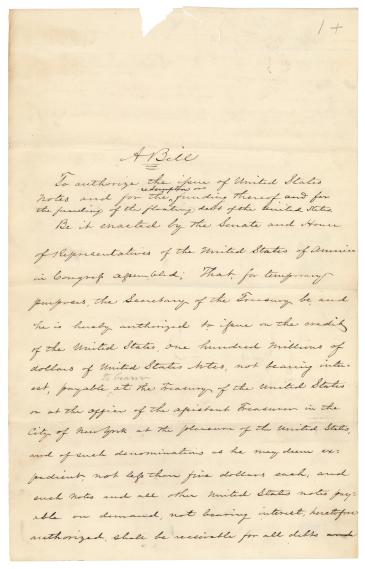 1 +
A Bill
To authorize the issue of United States
redemption or
Notes and for the funding thereof and for
the funding of the floating debt of the United States.
Be it enacted by the Senate and House
of Representatives of the United States of America
in Congress assembled; That, for temporary
purposes, the Secretary of the Treasury be, and
he is hereby authorized to issue on the credit
of the United States one hundred millions of
dollars of United States Notes, not bearing inter-
to bearer
est, payable at the Treasury of the United States
or at the office of the assistant Treasurer in the
City of New York at the pleasure of the United States,
and of such denominations as he may deem ex-
pedient, not less than five dollars each, and
such notes and all other United States notes pay-
able on demand, not bearing interest, heretofore
authorized, shall be receivable for all debts and